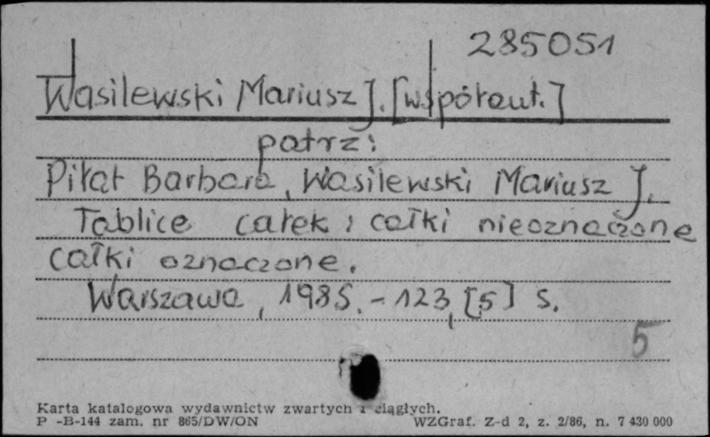 285051
Wasilewski Mariusz J. [współaut.]
patrz:
Piłat Barbara, Wasilewski Mariusz J.
Tablice całek : całki nieoznaczone
całki oznaczone.
Warszawa, 1985. - 123, [5] s.
5
Karta katalogowa wydawnictw zwartych i ciągłych.
P -B-144 zam. nr 865/DW/ON WZGraf. Z-d 2, z. 2/86, n. 7 430 000